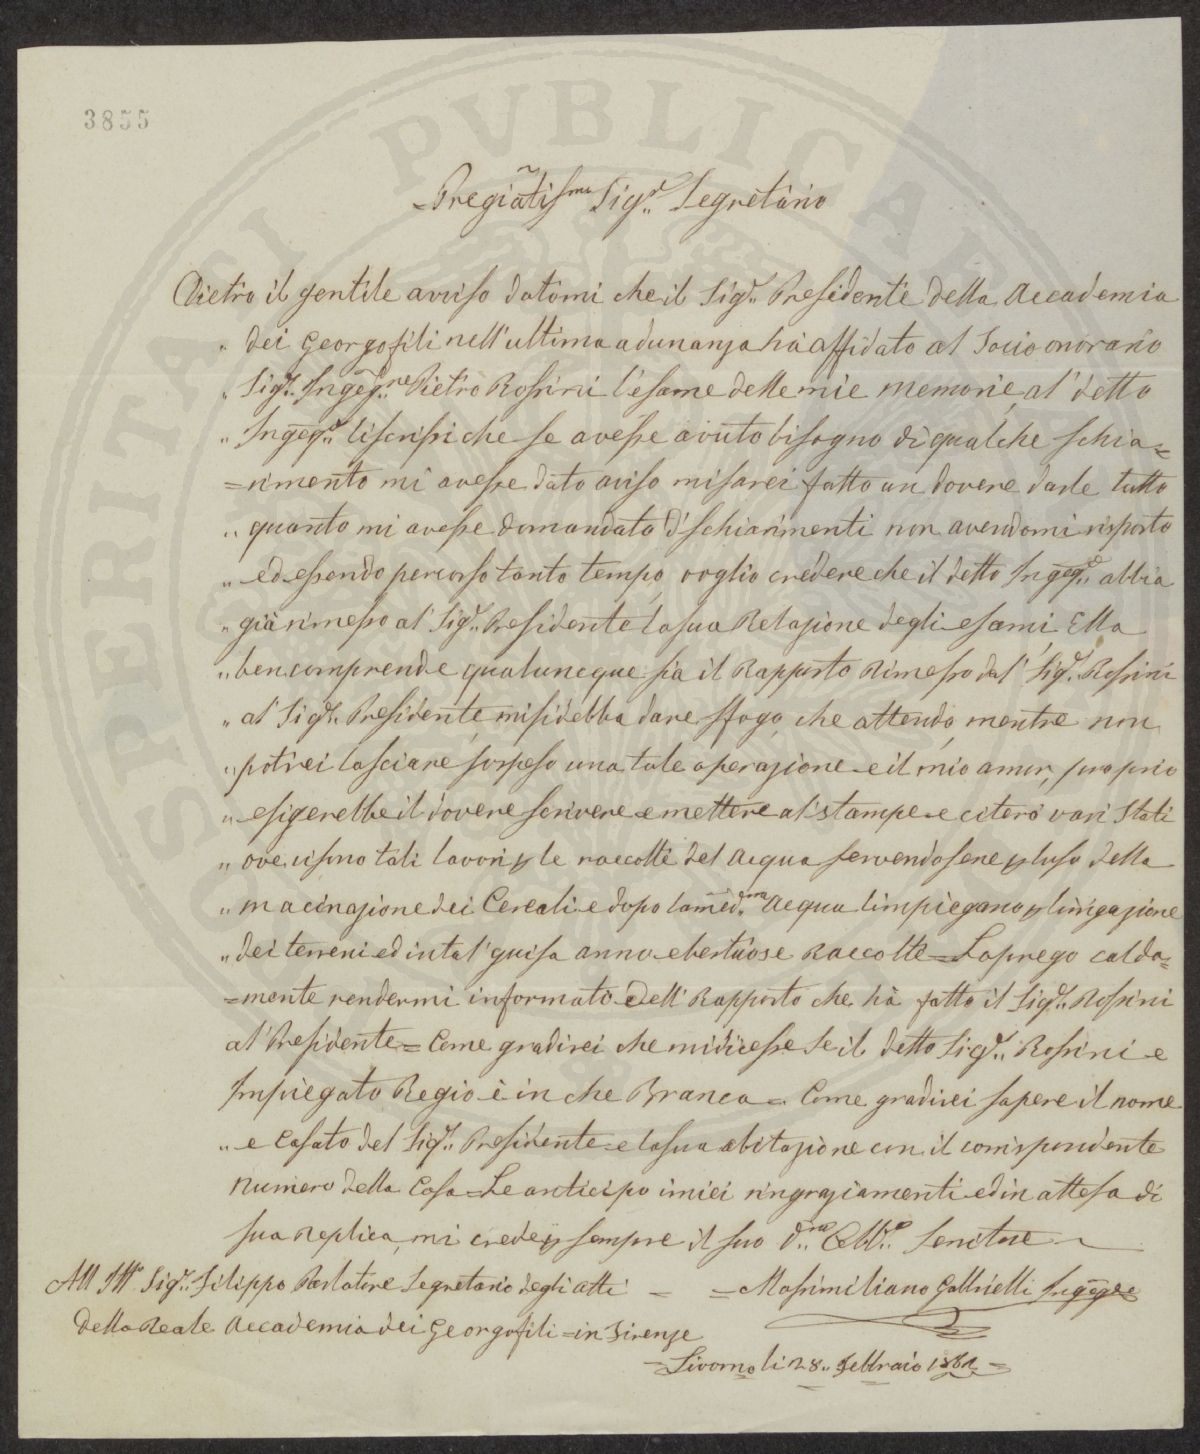 3855
Pregiatissmo Sigr. Segretario
Dietro il gentile avviso datomi che il Sigr. Presidente della Accademia
„ dei Georgofili nell'ultima adunanza hà affidato al Socio onorario
„ Sigr. Ingegre Pietro Rossini l'esame delle mie memorie, al' detto
„ Ingegr. li scrissi che se avesse avuto bisogno di qualche schia=
=rimento mi avesse dato aviso mi sarei fatto un dovere darle tutto
„ quanto mi avesse domandato di schiarimenti non avendomi risposto
„ ed essendo percorso tanto tempo, voglio credere che il detto Ingegr. abbia
„ già rimesso al' Sigr. Presidente la sua Relazione degli esami, Ella
„ ben comprende qualuncque sia il Rapporto Rimesso dal' Sigr. Rossini
„ al' Sigr. Presidente, mi si debba dare sfogo, che attendo, mentre non
„ potrei lasciare sospeso una tale operazione e il mio amor, proprio
„ esigerebbe il dovere scrivere e mettere al' stampe e citerò vari Stati
„ ove vi sono tali lavori p le raccolte del acqua servendosene p luso della
„ macinazione dei Cereali e dopo la med.ma acqua limpiegano p lirrigazione
„ dei terreni ed in tal' guisa anno ubertuose Raccolte = La prego calda=
=mente rendermi informato dell' Rapporto che hà fatto il Sigr. Rossini
al' Presidente = Come gradirei che mi dicesse se il detto Sigr. Rossini e
Impiegato Regio è in che Branca = Come gradirei sapere il nome
„ e Casato del Sigr. Presidente e la sua abitazione con il corrispondente
numero della Casa = Le anticipo i miei ringraziamenti ed in attesa di
sua replica, mi crede p sempre il suo D.mo Obb.o Servitore
All Ill.o Sigr. Filippo Parlatore Segretario degli atti = = Massimiliano Gabbrielli Ingegere
della Reale Accademia dei Georgofili = in Firenze
= Livorno li 28. Febbraio 1862 =